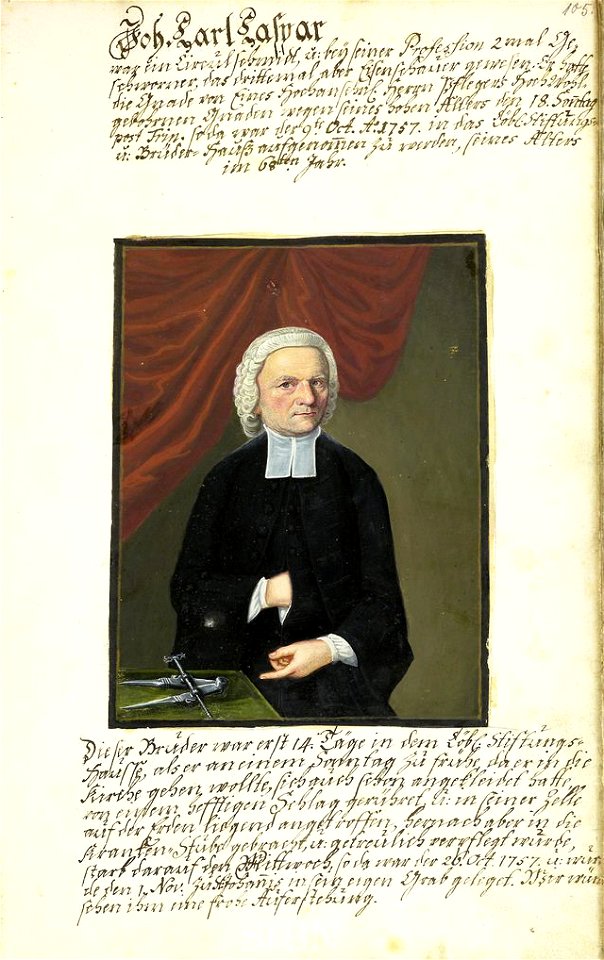 105.
Joh. Carl Caspar
war ein Circulschmidt, u: bey seiner Profession 2 mal Ge-
schworner, das drittemal aber Eisenschauer gewesen. Er hatte
die Gnade von Eines Hochansehnl. Herrn Pflegers Hochwohl-
gebohrnen Gnaden wegen seines hohen Alters den 18. Sontag
post Trin. so da war der 9te Oct. A: 1757. in das Löbl. Stifftungs-
u: Brüder-Hauß aufgenom̄en zu werden, seines Alters
im 68sten Jahr.
Dieser Bruder war erst 14. Täge in dem Löbl. Stifftungs-
Hauße, als er an einem Sonntag zu frühe, da er in die
Kirche gehen wollte, sich auch schon angekleidet hatte,
von einem hefftigen Schlag gerühret u: in seiner Zelle
auf der Erden liegend angetroffen, hernach aber in die
Kranken-Stube gebracht, u: getreulich verpflegt wurde,
starb darauf den Mittwoch, so da war der 26. Oct. 1757. u: wur-
de den 1. Nov. zu St. Johannis in sein eigen Grab geleget. Wir wün-
schen ihm eine frohe Auferstehung.